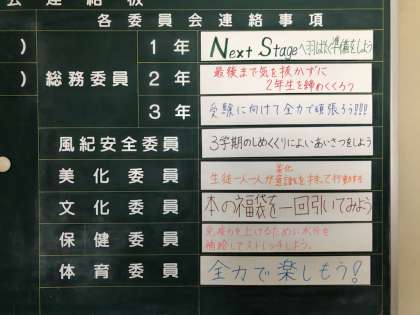 会連絡板
各委員会連絡事項
)
総務委員
1年
Next Stageへ羽ばたく準備をしよう
)
2年
最後まで気を抜かずに
2年生を締めくくろう
3年
受験に向けて全力で頑張ろう!!!
風紀安全委員
3学期のしめくくりによいあいさつをしよう
美化委員
美化
生徒一人一人が意識を持って行動する
文化委員
本の福袋を一回引いてみよう
保健委員
免疫力を上げるために水分を
補給してストレッチしよう。
体育委員
全力で楽しもう!